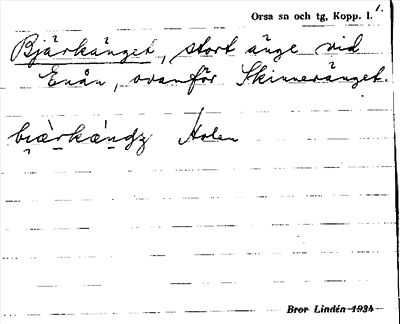 Orsa sn och tg, Kopp. l. 1.
Bjärkänget, stort änge vid
Enån, ovanför Skinneränget.
Holen
Bror Lindén 1934